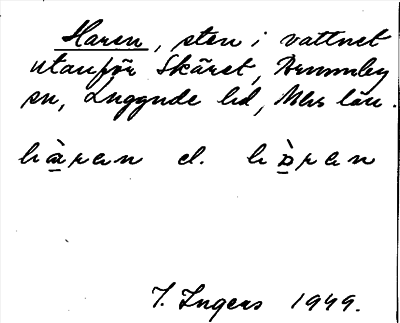 Haren, sten i vattnet
utanför Skäret, Brunnby
sn, Luggude hd, Mlhs län.
hàran el. hàran
I. Ingers 1949.